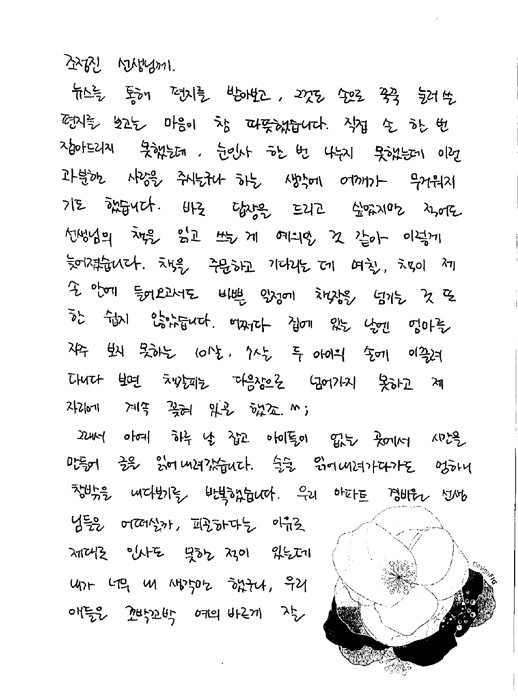 조정진 선생님께.
뉴스를 통해 편지를 받아보고, 그것도 손으로 꾹꾹 눌러 쓴
편지를 보고는 마음이 참 따뜻했습니다. 직접 손 한 번
잡아드리지 못했는데, 눈인사 한 번 나누지 못했는데 이런
과분한 사랑을 주시는구나 하는 생각에 어깨가 무거워지
기도 했습니다. 바로 답장을 드리고 싶었지만 적어도
선생님의 책을 읽고 쓰는 게 예의인 것 같아 이렇게
늦어졌습니다. 책을 주문하고 기다리는 데 며칠, 책이 제
손 안에 들어오고서도 바쁜 일정에 책장을 넘기는 것 또
한 쉽지 않았습니다. 어쩌다 집에 있는 날엔 엄마를
자주 보지 못하는 10살, 7살 두 아이의 손에 이끌려
다니다 보면 책갈피는 다음장으로 넘어가지 못하고 제
자리에 계속 꽂혀 있곤 했죠. ^^;
그래서 아예 하루 날 잡고 아이들이 없는 곳에서 시간을
만들어 글을 읽어내려갔습니다. 술술 읽어내려가다가도 멍하니
창밖을 내다보기를 반복했습니다. 우리 아파트 경비원 선생
님들은 어떠실까, 피곤하다는 이유로
제대로 인사도 못한 적이 있는데
내가 너무 내 생각만 했구나, 우리
애들은 꼬박꼬박 예의바르게 잘